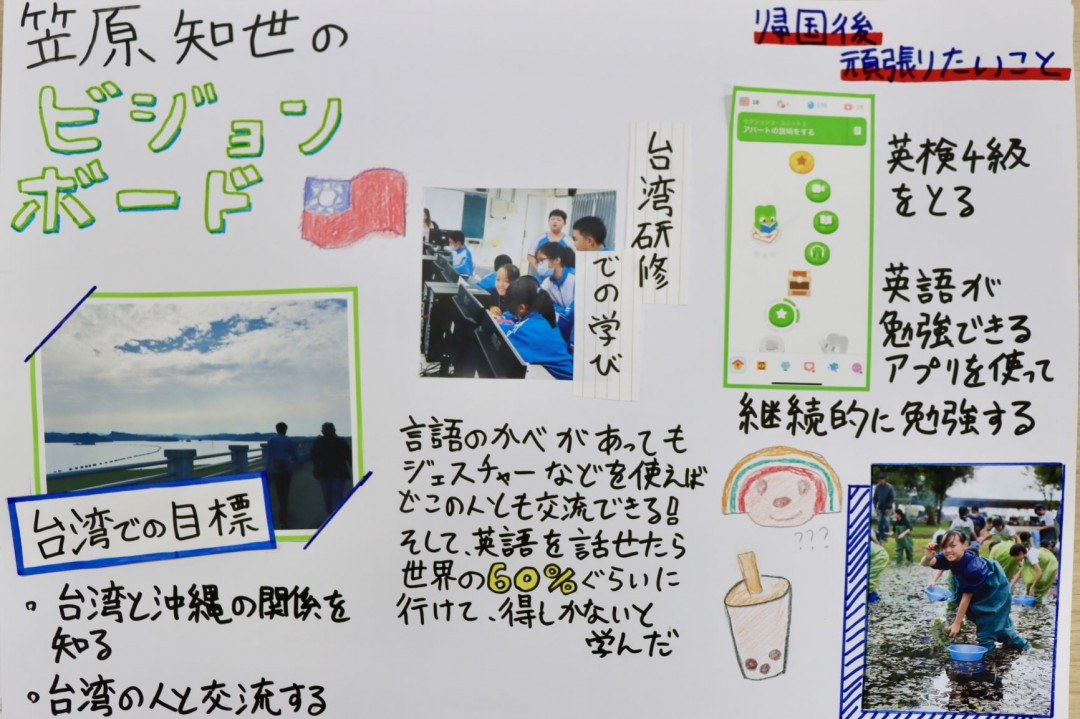 笠原 知世の
ビジョン
ボード
台湾での目標
。台湾と沖縄の関係を
知る
。台湾の人と交流する
台湾研修
での学び
言語のかべがあっても
ジェスチャーなどを使えば
どこの人とも交流できる!!
そして、英語を話せたら
世界の60%ぐらいに
行けて、得しかないと
学んだ
帰国後
頑張りたいこと
アパートの説明をする
英検4級
をとる
英語が
勉強できる
アプリを使って
継続的に勉強する
???